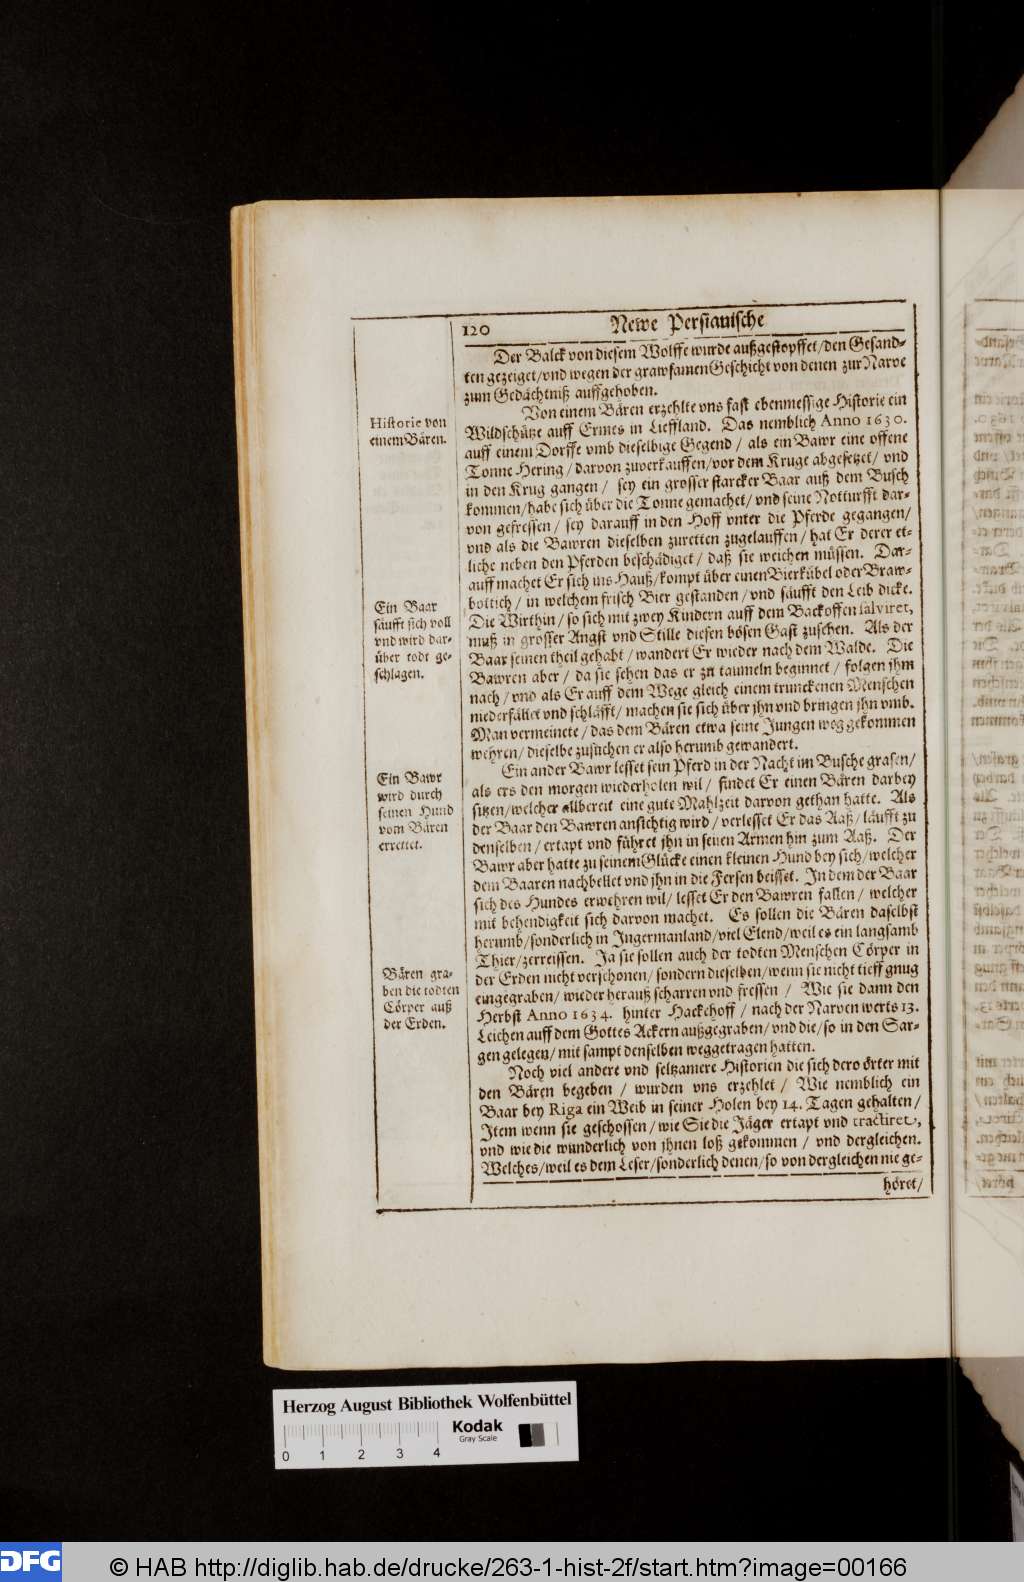 120 Newe Persianische
Der Balck von diesem Wolffe wurde außgestopffet/den Gesand-
ten gezeiget/vnd wegen der grawsamen Geschicht von denen zur Narve
zum Gedächtniß auffgehoben.
Historie von
einem Bären.
Von einem Bären erzehlte vns fast ebenmessige Historie ein
Wildschütze auff Ermes in Lieffland. Das nemblich Anno 1630.
auff einem Dorffe vmb dieselbige Gegend / als ein Bawr eine offene
Tonne Hering / darvon zuverkauffen/vor dem Kruge abgesetzet/ vnd
in den Krug gangen / sey ein grosser starcker Baar auß dem Busch
kommen/habe sich über die Tonne gemachet/ vnd seine Notturfft dar-
von gefressen / sey darauff in den Hoff vnter die Pferde gegangen/
vnd als die Bawren dieselben zuretten zugelauffen / hat Er derer et-
liche neben den Pferden beschädiget / daß sie weichen müssen. Dar-
auff machet Er sich ins Hauß/kompt über einen Bierkübel oder Braw-
bottich / in welchem frisch Bier gestanden / vnd säufft den Leib dicke.
Ein Baar
säufft sich voll
vnd wird dar-
über todt ge-
schlagen.
Die Wirthin / so sich mit zwey Kindern auff dem Backoffen salviret,
muß in grosser Angst vnd Stille diesen bösen Gast zusehen. Als der
Baar seinen theil gehabt / wandert Er wieder nach dem Walde. Die
Bawren aber / da sie sehen das er zu taumeln beginnet / folgen jhm
nach / vnd als Er auff dem Wege gleich einem trunckenen Menschen
niederfället vnd schläfft / machen sie sich über jhn vnd bringen jhn vmb.
Man vermeinete / das dem Bären etwa seine Jungen weg gekommen
wehren / dieselbe zusuchen er also herumb gewandert.
Ein Bawr
wird durch
seinen Hund
vom Bären
errettet.
Ein ander Bawr lesset sein Pferd in der Nacht im Busche grasen/
als ers den morgen wiederholen wil / findet Er einen Bären darbey
sitzen/welcher allbereit eine gute Mahlzeit darvon gethan hatte. Als
der Baar den Bawren ansichtig wird / verlesset Er das Aaß/ läufft zu
denselben / ertapt vnd führet jhn in seinen Armen hin zum Aaß. Der
Bawr aber hatte zu seinem Glücke einen kleinen Hund bey sich/welcher
dem Baaren nachbellet vnd jhn in die Fersen beisset. In dem der Baar
sich des Hundes erwehren wil/ lesset Er den Bawren fallen / welcher
mit behendigkeit sich darvon machet. Es sollen die Bären daselbst
herumb/sonderlich in Ingermanland/viel Elend/weil es ein langsamb
Thier/zerreissen. Ja sie sollen auch der todten Menschen Cörper in
Bären gra-
ben die todten
Cörper auß
der Erden.
der Erden nicht verschonen/ sondern dieselben/wenn sie nicht tieff gnug
eingegraben/ wieder herauß scharren vnd fressen / Wie sie dann den
Herbst Anno 1634. hinter Hackehoff / nach der Narven werts 13.
Leichen auff dem Gottes Ackern außgegraben/ vnd die/so in den Sär-
gen gelegen/ mit sampt denselben weggetragen hatten.
Noch viel andere vnd seltzamere Historien die sich dero örter mit
den Bären begeben / wurden vns erzehlet / Wie nemblich ein
Baar bey Riga ein Weib in seiner Holen bey 14. Tagen gehalten/
Item wenn sie geschossen / wie Sie die Jäger ertapt vnd tractiret,
vnd wie die wunderlich von jhnen loß gekommen / vnd dergleichen.
Welches/weil es dem Leser/sonderlich denen/so von dergleichen nie ge-
höret/
Herzog August Bibliothek Wolfenbüttel
Kodak
Gray Scale
0 1 2 3 4
DFG © HAB http://diglib.hab.de/drucke/263-1-hist-2f/start.htm?image=00166